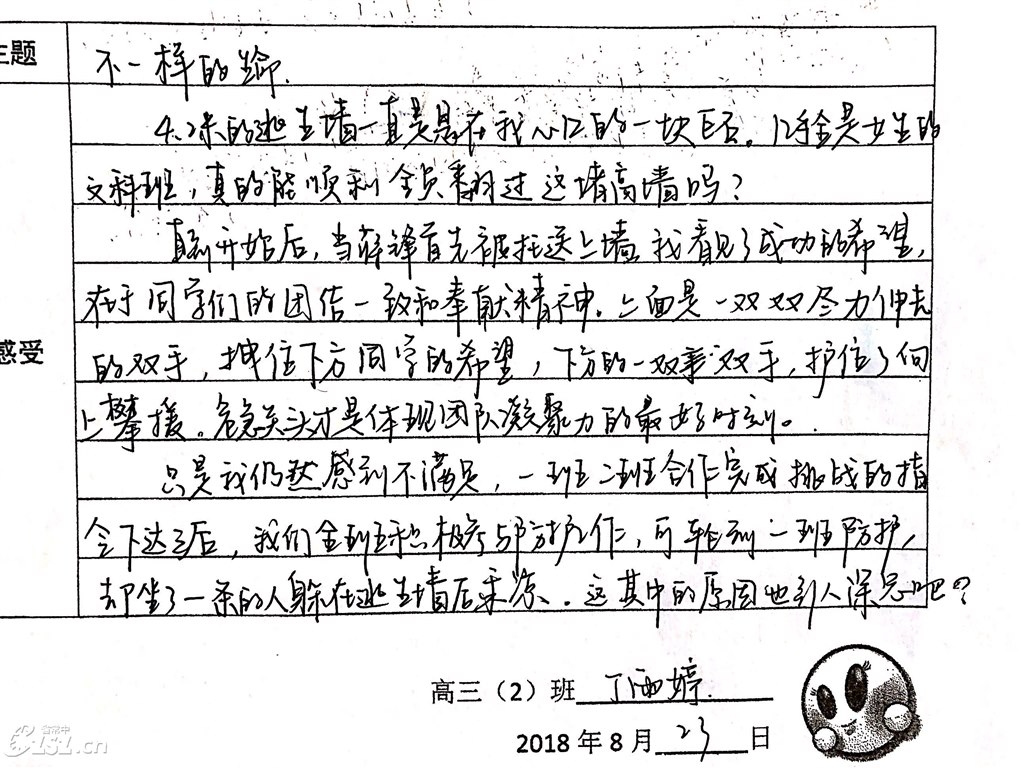 主题
不一样的生命.
4.2米的逃生墙一直是悬在我心口的一块巨石。几乎全是女生的
文科班，真的能顺利全员翻过这堵高墙吗？
真正开始后，当蒋锋首先被托送上墙，我看见了成功的希望，
在于同学们的团结一致和奉献精神。上面是一双双尽力伸去
的双手，拽住下方同学的希望，下方的一双双手，护住了向
上攀援。危急关头才是体现团队凝聚力的最好时刻。
感受
只是我仍然感到不满足，一班二班合作完成挑战的指
令下达之后，我们全班积极参与防护工作，可轮到一班防护，
却坐了一条的人躲在逃生墙后乘凉。这其中的原因也引人深思吧？
高三（2）班 丁雨婷
2018年8月23日
省常中
CZ1Z1.cn